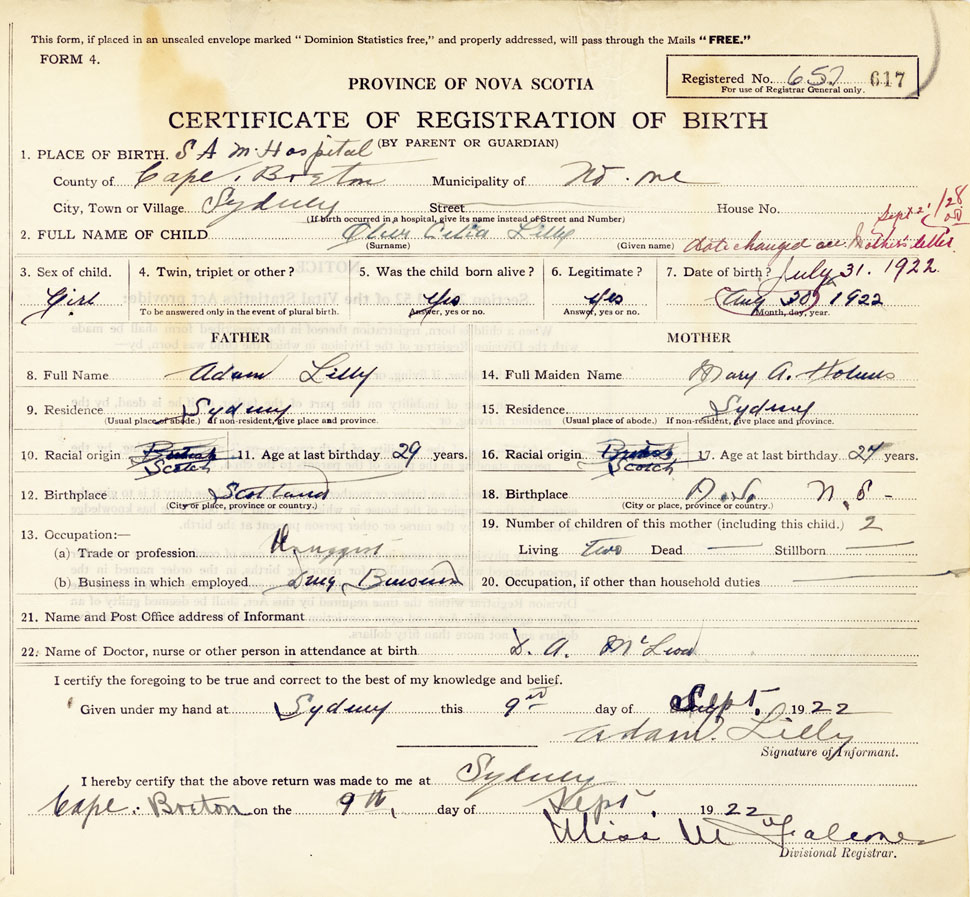 This form, if placed in an unsealed envelope marked “ Dominion Statistics free,” and properly addressed, will pass through the Mails “FREE.”
FORM 4.
PROVINCE OF NOVA SCOTIA
Registered No. 657 617
For use of Registrar General only.
CERTIFICATE OF REGISTRATION OF BIRTH
(BY PARENT OR GUARDIAN)
1. PLACE OF BIRTH. S A M Hospital
County of Cape Breton Municipality of No. one
City, Town or Village Sydney Street House No.
(If birth occurred in a hospital, give its name instead of Street and Number)
Sept 2 /28
2. FULL NAME OF CHILD Celia Lilly
(Surname) (Given name) date changed acc. Mother's letter
3. Sex of child. 4. Twin, triplet or other? 5. Was the child born alive? 6. Legitimate? 7. Date of birth? July 31. 1922
Girl Yes Yes Aug 30 1922
To be answered only in the event of plural birth. Answer, yes or no. Answer, yes or no. Month, day, year.
FATHER MOTHER
8. Full Name Adam Lilly 14. Full Maiden Name Mary A. Holmes
9. Residence Sydney 15. Residence Sydney
(Usual place of abode.) If non-resident, give place and province. (Usual place of abode.) If non-resident, give place and province.
10. Racial origin British 11. Age at last birthday 29 years. 16. Racial origin British 17. Age at last birthday 24 years.
Scotch Scotch
12. Birthplace Scotland 18. Birthplace N. S -
(City or place, province or country.) (City or place, province or country.)
19. Number of children of this mother (including this child.) 2
13. Occupation:—
(a) Trade or profession Druggist Living two Dead — Stillborn —
(b) Business in which employed Drug Business 20. Occupation, if other than household duties
21. Name and Post Office address of Informant
22. Name of Doctor, nurse or other person in attendance at birth D. A. McLeod
I certify the foregoing to be true and correct to the best of my knowledge and belief.
Given under my hand at Sydney this 9th day of Sept. 1922
Adam Lilly
Signature of Informant.
I hereby certify that the above return was made to me at Sydney
Cape Breton on the 9th, day of Sept. 1922
Miss M Falconer
Divisional Registrar.